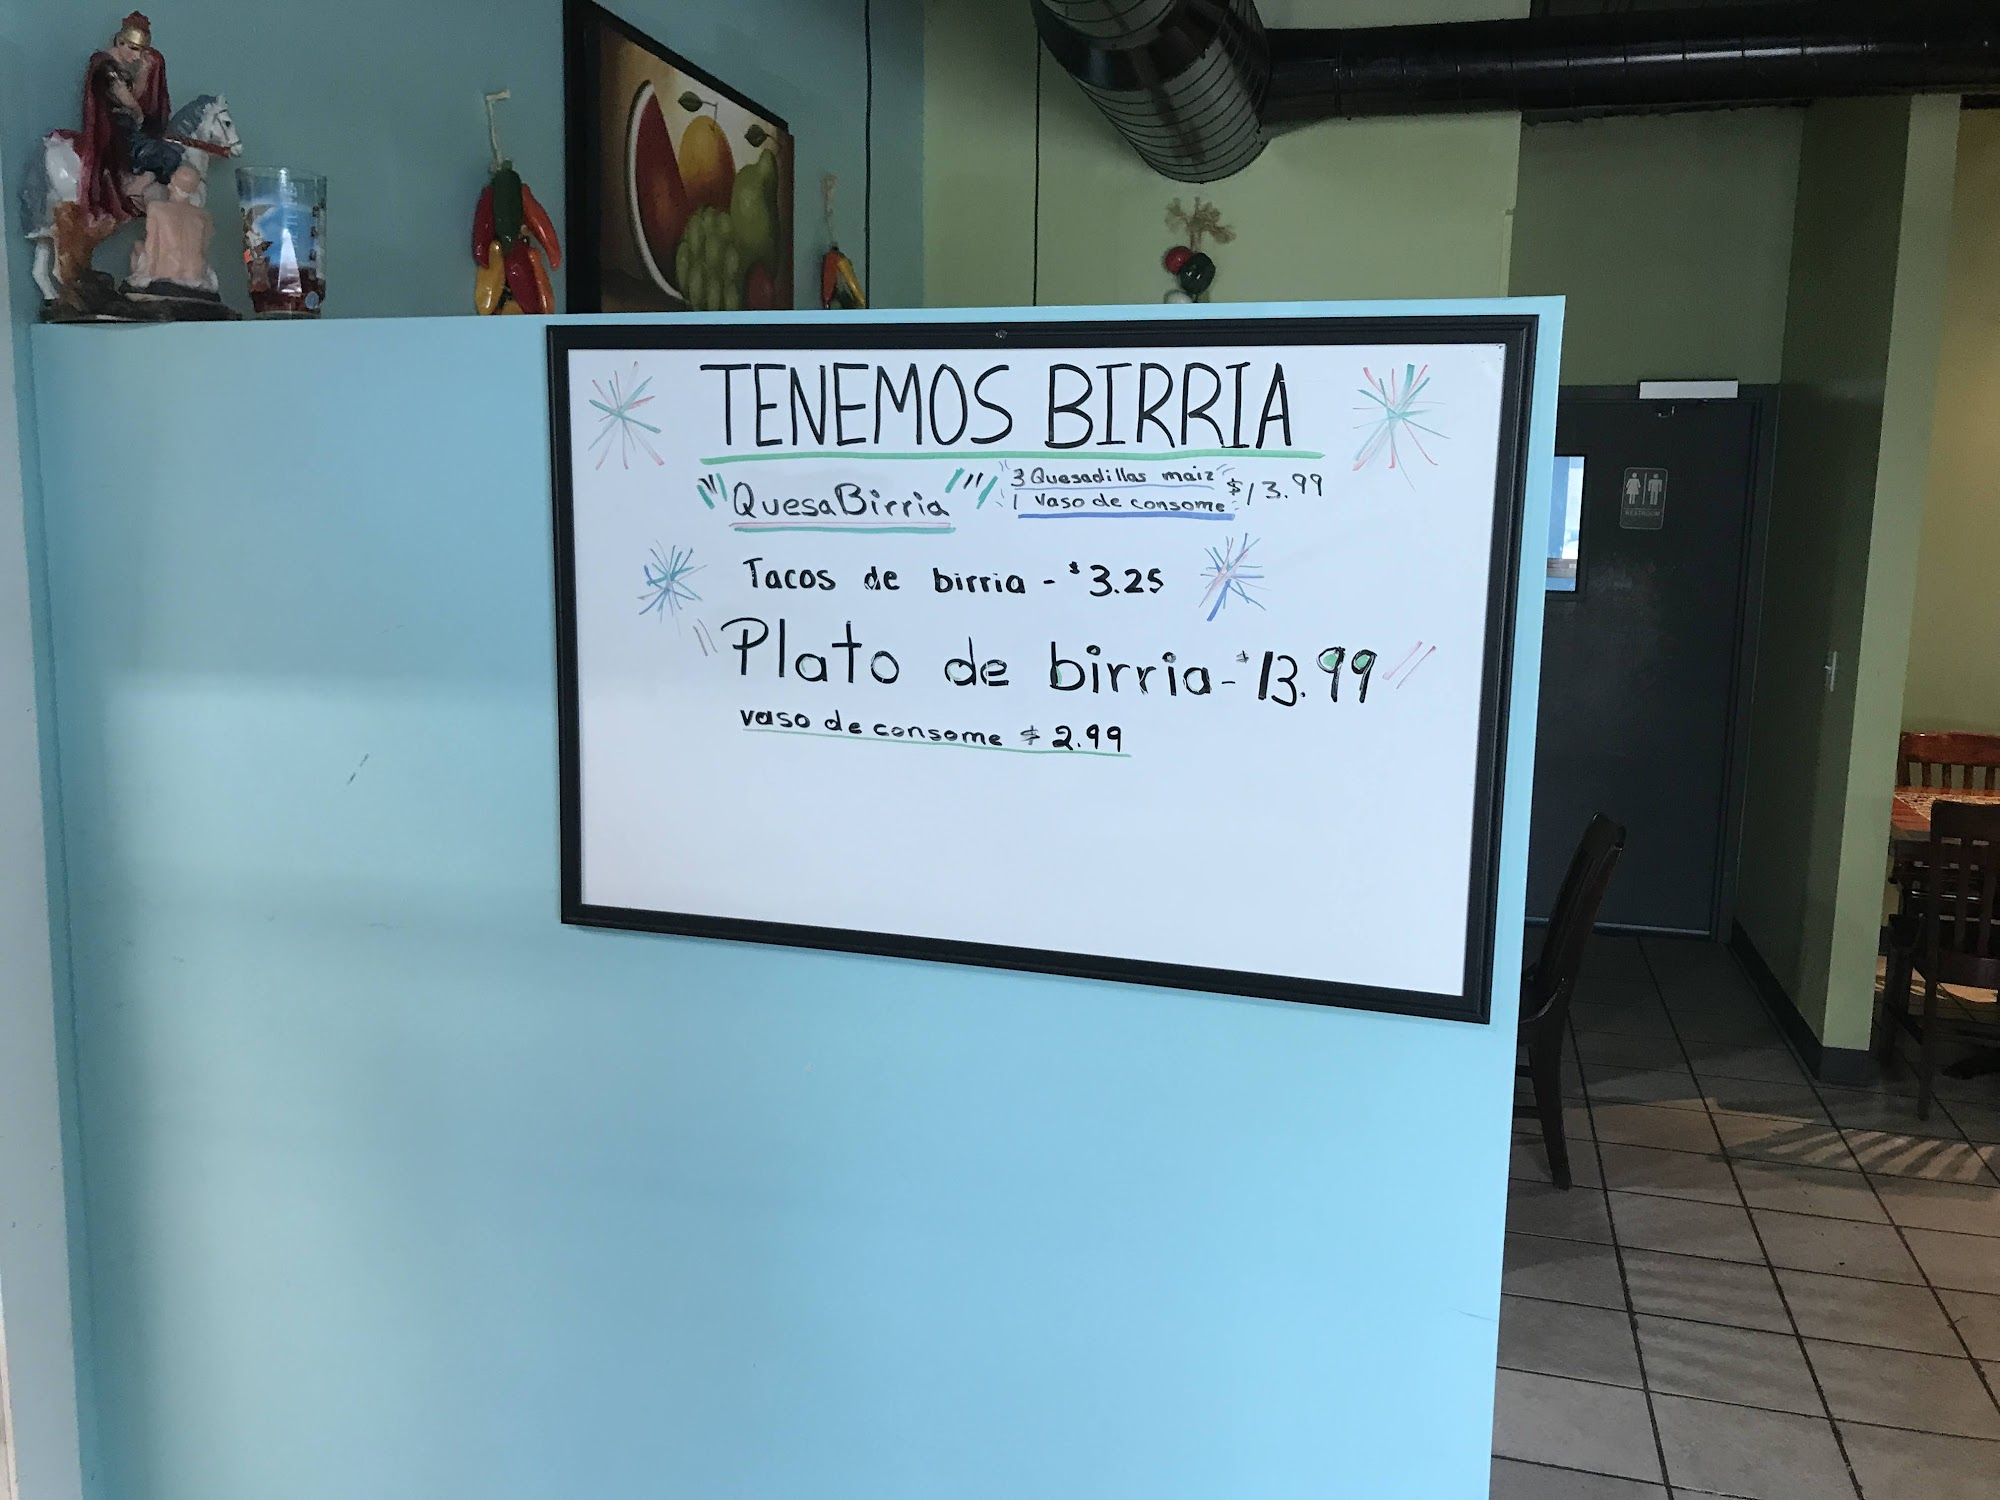 TENEMOS BIRRIA
QuesaBirria
3 Quesadillas maiz
1 vaso de consome
$13.99
Tacos de birria - $3.25
Plato de birria - $13.99
vaso de consome $2.99
RESTROOM